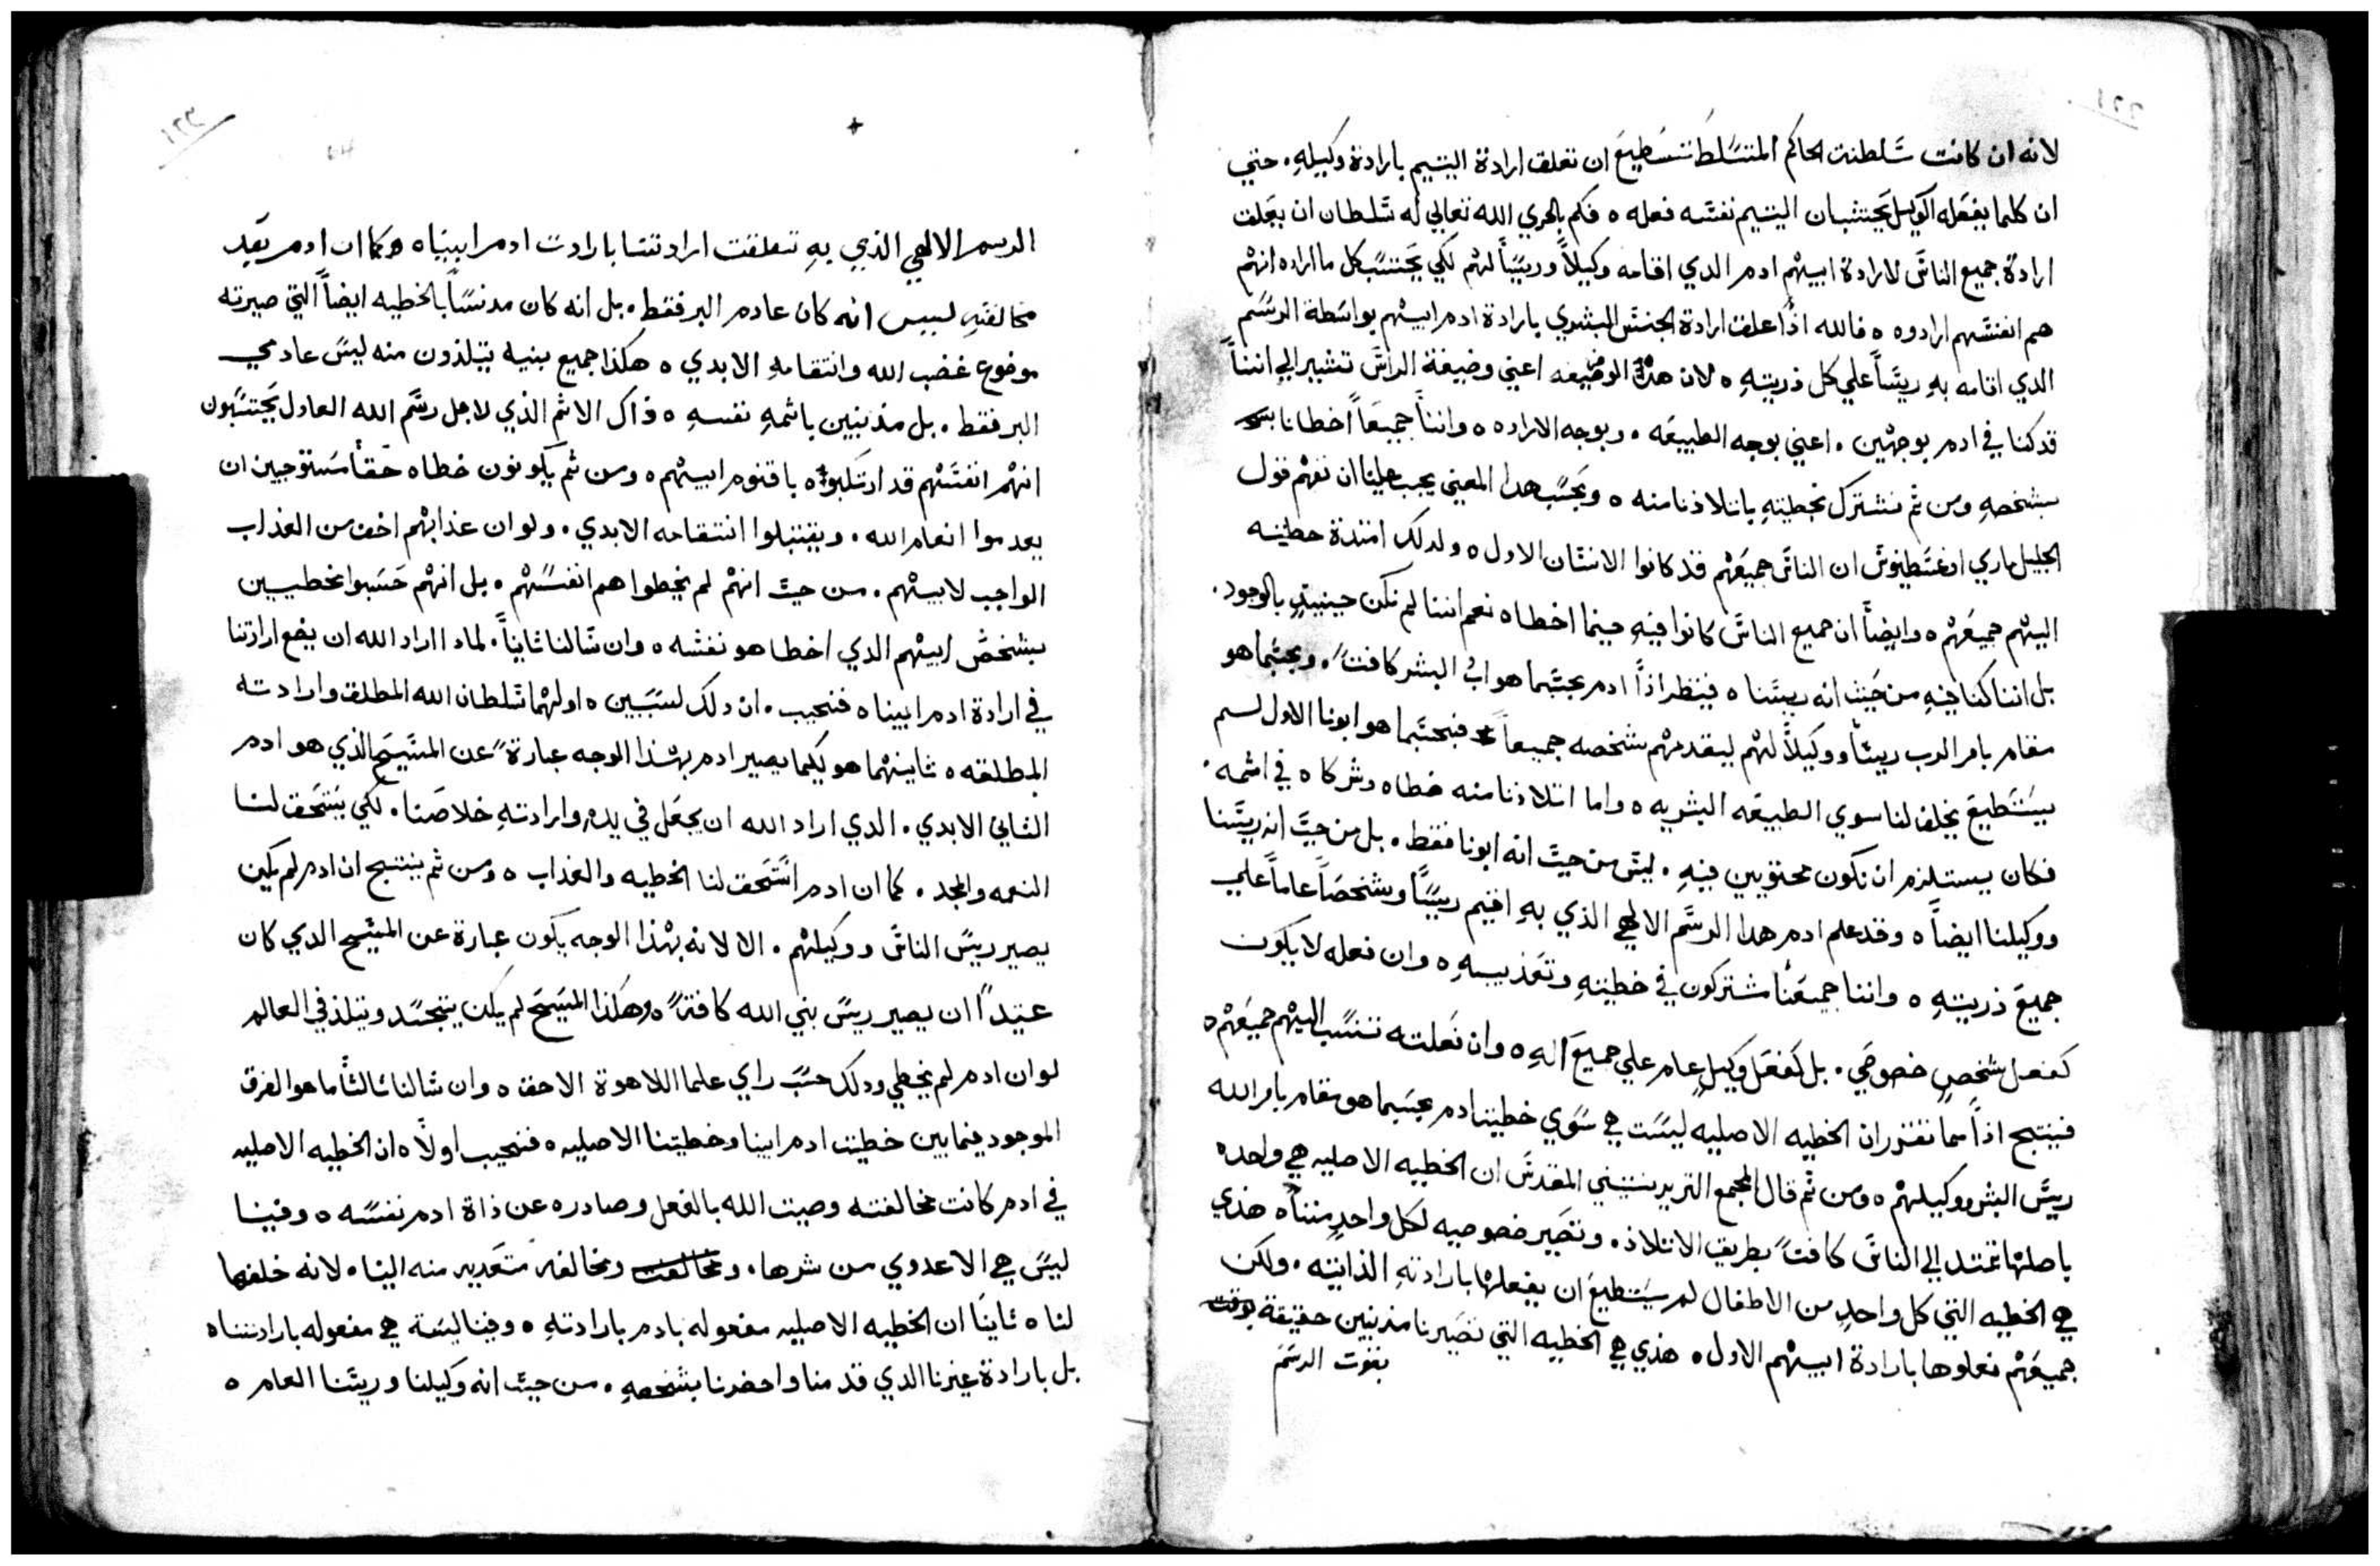 لانه ان كانت سلطنت الحاكم المتسلط تستطيع ان تعلق ارادة اليتيم بارادة وكيله. حتي
ان كلما يفعله الوكيل يحتسب ان اليتيم نفسه فعله ه فكم بالحري الله تعالي له سلطان ان يعلق
ارادة جميع الناس لارادة ابيهم ادم الدي اقامه وكيلاً وريساً لهم لكي يحتسب كل ما اراده انهم
هم انفسهم ارادوه ه فالله اذاً علق ارادة الجنس البشري بارادة ادم ابيهم بواسطة الرسم
الدي اقامه به ريساً علي كل ذريته ه لان هذه الوضيفه اعني وضيفة الراس تشير الي اننا
قد كنا في ادم بوجهين. اعني بوجه الطبيعه. وبوجه الاراده ه واننا جميعاً اخطانا
بشخصه ومن ثم نشترك بخطيته باتلادنا منه ه وبحسب هدا المعني يجب علينا ان نفهم قول
الجليل ماري اغسطينوس ان الناس جميعهم قد كانوا الانسان الاول ه ولدلك امتدة خطيته
اليهم جميعهم ه وايضاً ان جميع الناس كانوا فيه حينما اخطاه نعم اننا لم نكن حينيدٍ بالوجود.
بل اننا كنا فيه من حيث انه ريسنا ه فينظر اذاً ادم بحسبما هو اب البشر كافتً. وبحسبما هو
مقام بامر الرب ريساً ووكيلاً لهم ليقدمهم بشخصه جميعاً فبحسبما هو ابونا الاول لم
يستطيع يخلف لنا سوي الطبيعه البشريه ه واما اتلادنا منه خطاه وشركاه في اثمه.
فكان يستلزم ان نكون محتويين فيه. ليس من حيث انه ابونا فقط. بل من حيث انه ريسنا
ووكيلنا ايضاً ه وقد علم ادم هدا الرسم الالهي الذي به اقيم ريساً وشخصاً عاماً علي
جميع ذريته ه واننا جميعنا مشتركون في خطيته وتعذيبه ه وان فعله لا يكون
كفعل شخصٍ خصوصي. بل كفعل وكيلٍ عام علي جميع اله ه وان فعلته تنسب اليهم جميعهم ه
فينتج اذاً مما تقرر ان الخطيه الاصليه ليست هي سوي خطية ادم بحسبما هو مقام بامر الله
ريس البشر ووكيلهم ه ومن ثم قال المجمع التريدنتيني المقدس ان الخطيه الاصليه هي واحده
باصلها تمتد الي الناس كافتً بطريق الاتلاد. وتصير خصوصيه لكل واحد مننا ه هذي
هي الخطيه التي كل واحدٍ من الاطفال لم يستطيع ان يفعلها بارادته الذاتيه. ولكن
جميعهم فعلوها بارادة ابيهم الاول. هذي هي الخطيه التي تصيرنا مذنبين حقيقة بقوت
بقوت الرسم
الرسم الالهي الذي به تعلقت ارادتنا بارادت ادم ابينا ه وكما ان ادم بعد
مخالفته ليس انه كان عادم البر فقط. بل انه كان مدنساً بالخطيه ايضاً التي صيرته
موضوع غضب الله وانتقامه الابدي ه هكذا جميع بنيه يتلذون منه ليس عادمي
البر فقط. بل مذنبين باثمه نفسه ه ذاك الاثم الذي لاجل رسم الله العادل يحتسبون
انهم انفسهم قد ارتكبوه باقنوم ابيهم ه ومن ثم يكونون خطاه حقاً مستوجبين ان
يعدموا انعام الله. ويقتبلوا انتقامه الابدي. ولو ان عذابهم اخف من العذاب
الواجب لابيهم. من حيث انهم لم يخطوا هم انفسهم. بل انهم حسبوا مخطيين
بشخص ابيهم الدي اخطا هو نفسه ه وان سالنا ثانياً. لمادا اراد الله ان يضع ارادتنا
في ارادة ادم ابينا ه فنجيب. ان دلك لسببين ه اولهما سلطان الله المطلق وارادته
المطلقه ه ثانيهما هو لكيما يصير ادم بهذا الوجه عبارةً عن المسيح الذي هو ادم
الثاني الابدي. الدي اراد الله ان يجعل في يده وارادته خلاصنا. لكي يستحق لنا
النعمه والمجد. كما ان ادم استحق لنا الخطيه والعذاب ه ومن ثم ينتج ان ادم لم يكن
يصير ريس الناس ووكيلهم. الا لانه بهذا الوجه يكون عبارة عن المسيح الدي كان
عتيداً ان يصير ريس بني الله كافتةً ه وهكذا المسيح لم يكن يتجسد ويتلذ في العالم
لو ان ادم لم يخطي ودلك حسب راي علما اللاهوة الاحق ه وان سالنا ثالثاً ما هو الفرق
الموجود فيما بين خطيت ادم ابينا وخطيتنا الاصليه ه فنجيب اولاً ه ان الخطيه الاصليه
في ادم كانت مخالفته وصيت الله بالفعل وصادره عن ذاة ادم نفسه ه وفينا
ليس هي الا عدوي من شرها. ومخالفه متعديه منه الينا ه لانه خلفها
لنا ه ثانياً ان الخطيه الاصليه مفعوله بادم بارادته ه وفينا ليسة هي مفعوله بارادتنا ه
بل بارادة غيرنا الدي قدمنا واحضرنا بشخصه. من حيث انه وكيلنا وريسنا العام ه